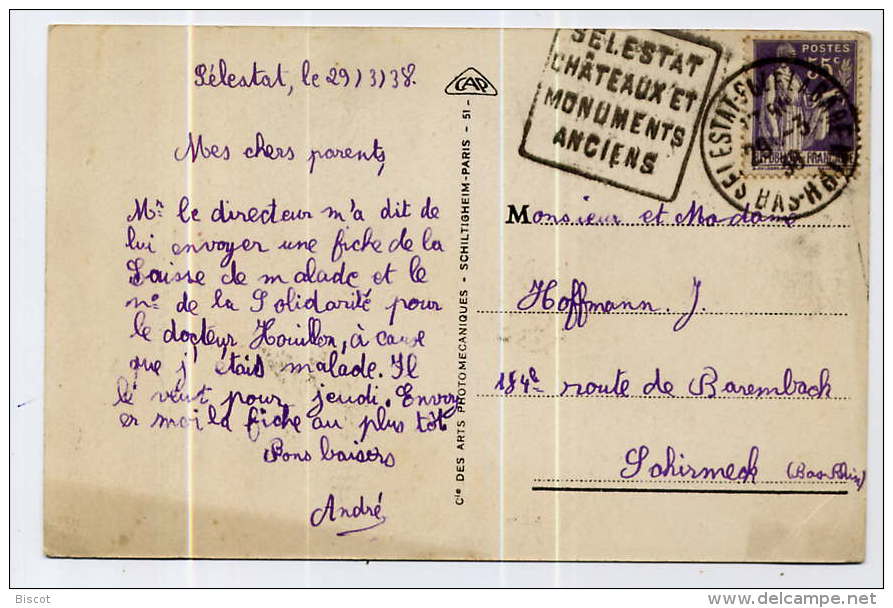 Sélestat, le 29/3/38.
Mes chers parents,
Mr le directeur m'a dit de
lui envoyer une fiche de la
Caisse de malade et le
no de la Solidarité pour
le docteur Houillon, à cause
que j'étais malade. Il
le veut pour jeudi. Envoy
er moi la fiche au plus tôt
Bons baisers
André
CAP
Cie DES ARTS PHOTOMECANIQUES - SCHILTIGHEIM-PARIS - 51 -
SÉLESTAT
CHÂTEAUX ET
MONUMENTS
ANCIENS
POSTES
55c
FRANCAISE
BAS-RHIN
Monsieur et Madame
Hoffmann. J.
184e route de Barembach
Schirmeck (Bas-Rhin)
Biscot
delcampe.net